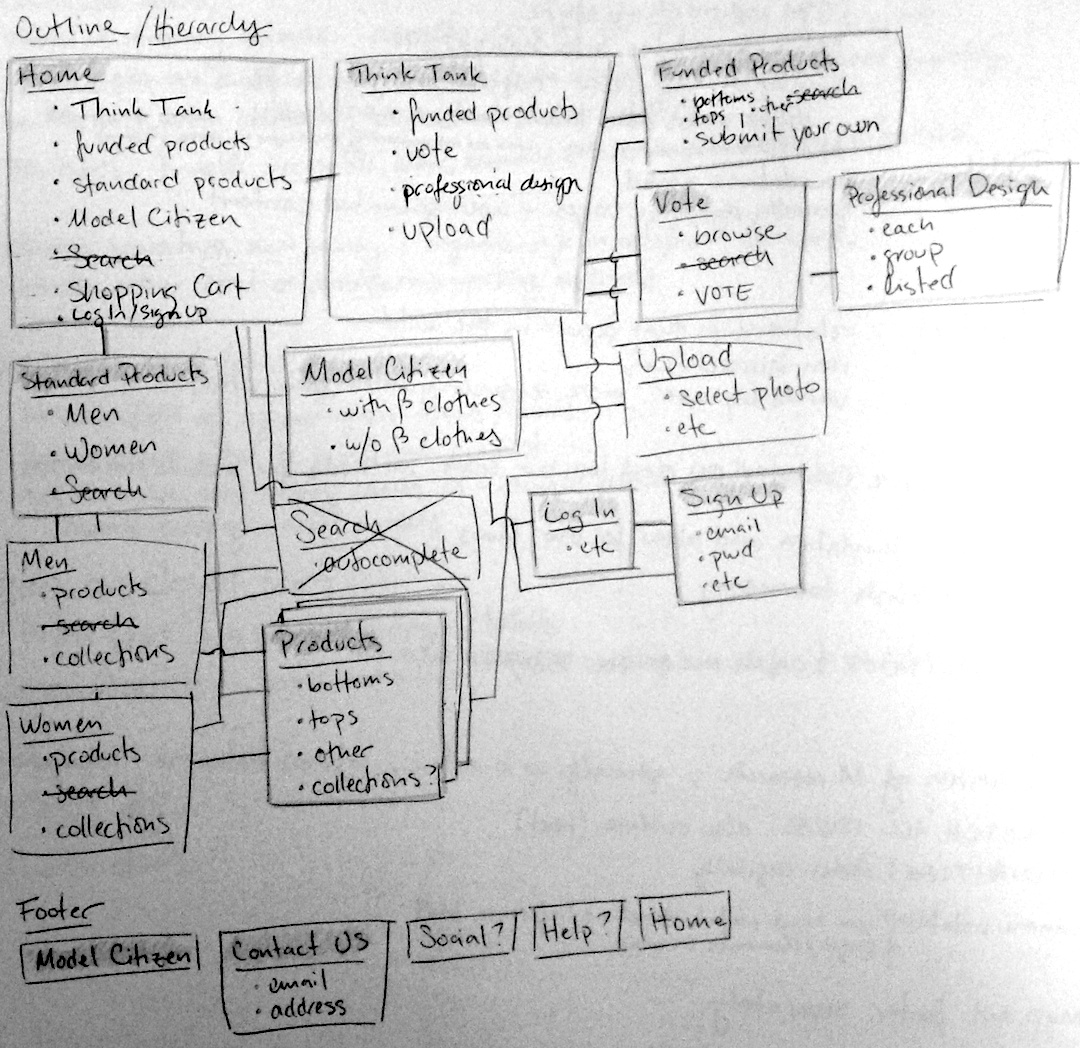 Outline / Hierarchy
Home
• Think Tank
• funded products
• standard products
• Model Citizen
• Search
• Shopping Cart
• Log In/Sign Up
Think Tank
• funded products
• vote
• professional design
• upload
Funded Products
• bottoms
• search
• tops
• other
• submit your own
Vote
• browse
• search
• VOTE
Professional Design
• each
• group
• listed
Standard Products
• Men
• Women
• Search
Model Citizen
• with β clothes
• w/o β clothes
Upload
• select photo
• etc
Search
• autocomplete
Log In
• etc
Sign Up
• email
• pwd
• etc
Men
• products
• search
• collections
Products
• bottoms
• tops
• other
• collections?
Women
• products
• search
• collections
Footer
Model Citizen
Contact Us
• email
• address
Social?
Help?
Home